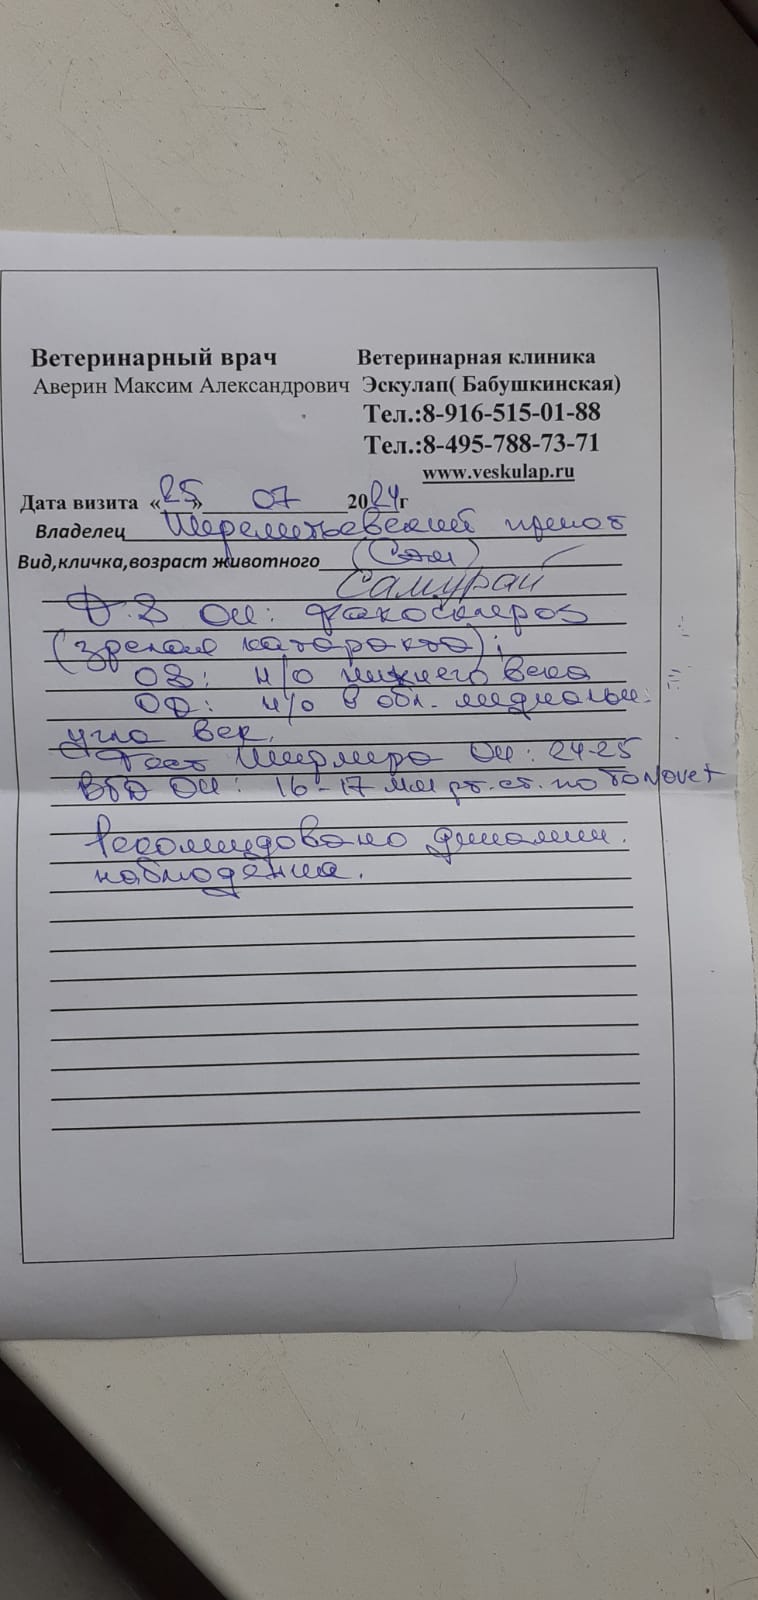 Ветеринарный врач
Ветеринарная клиника
Аверин Максим Александрович
Эскулап( Бабушкинская)
Тел.:8-916-515-01-88
Тел.:8-495-788-73-71
www.veskulap.ru
Дата визита «25» 07 2024г
Владелец Шереметьевский приют
Вид,кличка,возраст животного (Сэм)
Самурай
D.S OU: факосклероз
(зрелая катаракта);
OS: н/о нижнего века
OD: н/о в обл. медиальн.
угла век.
Тест Ширмера OU: 24-25
ВГД OU: 16-17 мм рт.ст. по Tonovet
Рекомендовано динамич.
наблюдение.